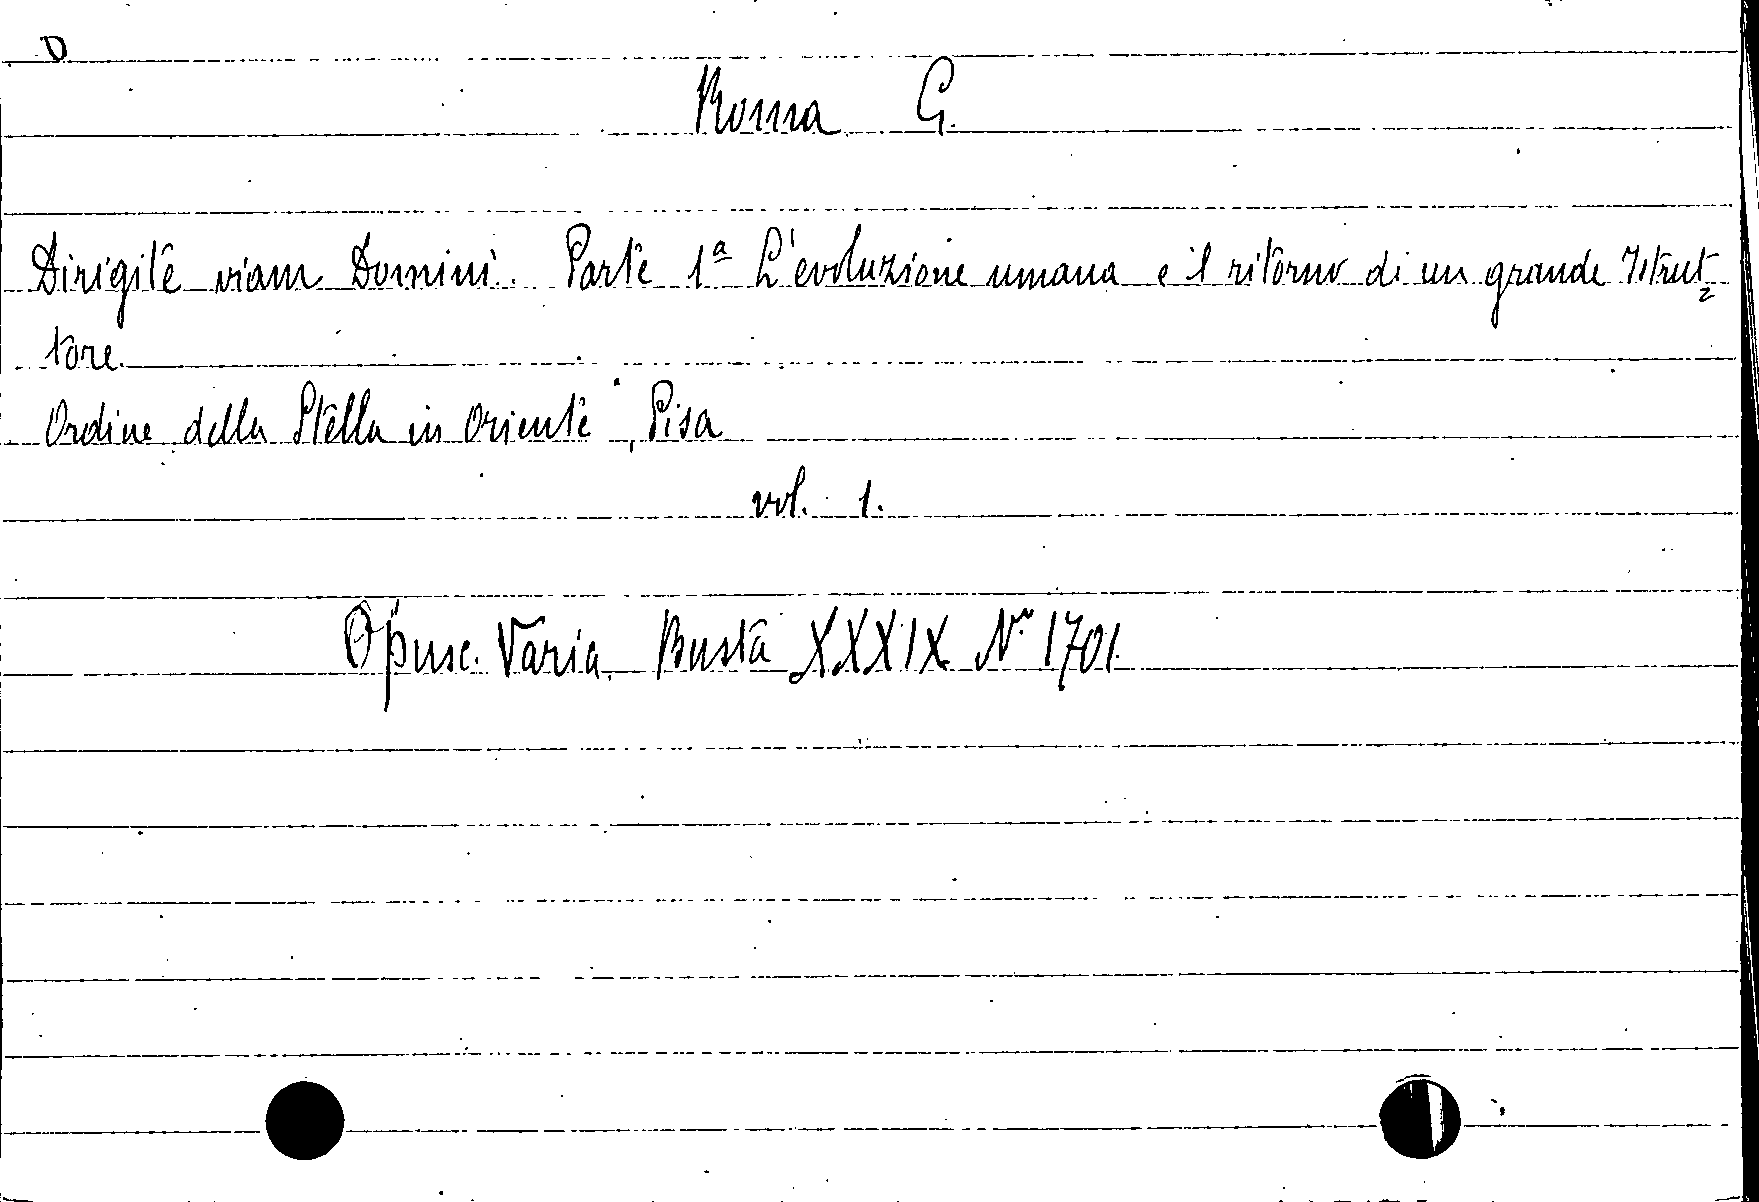 D
Roma G.
Dirigite viam Domini. Parte 1ª L'evoluzione umana e il ritorno di un grande Istrut=
tore.
Ordine della Stella in Oriente, Pisa
vol. 1.
Opusc. Varia. Busta XXXIX Nº 1701.